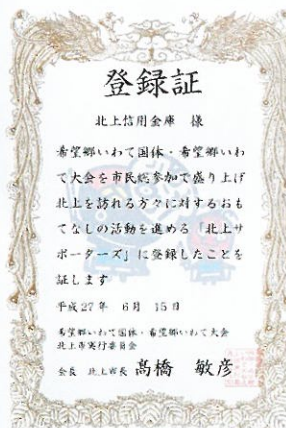 登録証
北上信用金庫 様
希望郷いわて国体・希望郷いわ
て大会を市民総参加で盛り上げ
北上を訪れる方々に対するおも
てなしの活動を進める「北上サ
ポーターズ」に登録したことを
証します
平成27年 6月 15日
希望郷いわて国体・希望郷いわて大会
北上市実行委員会
会長 北上市長 髙橋 敏彦